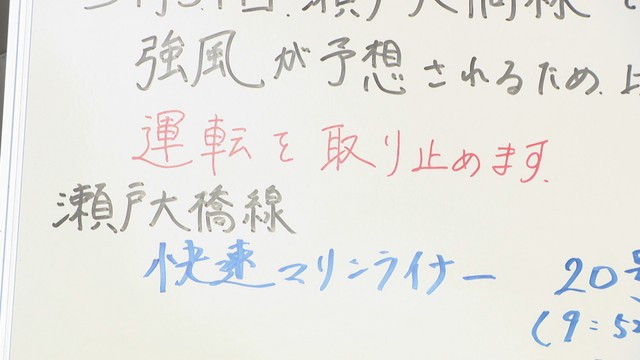 瀬戸大橋線
強風が予想されるため、
運転を取り止めます。
瀬戸大橋線
快速マリンライナー 20号
(9:5